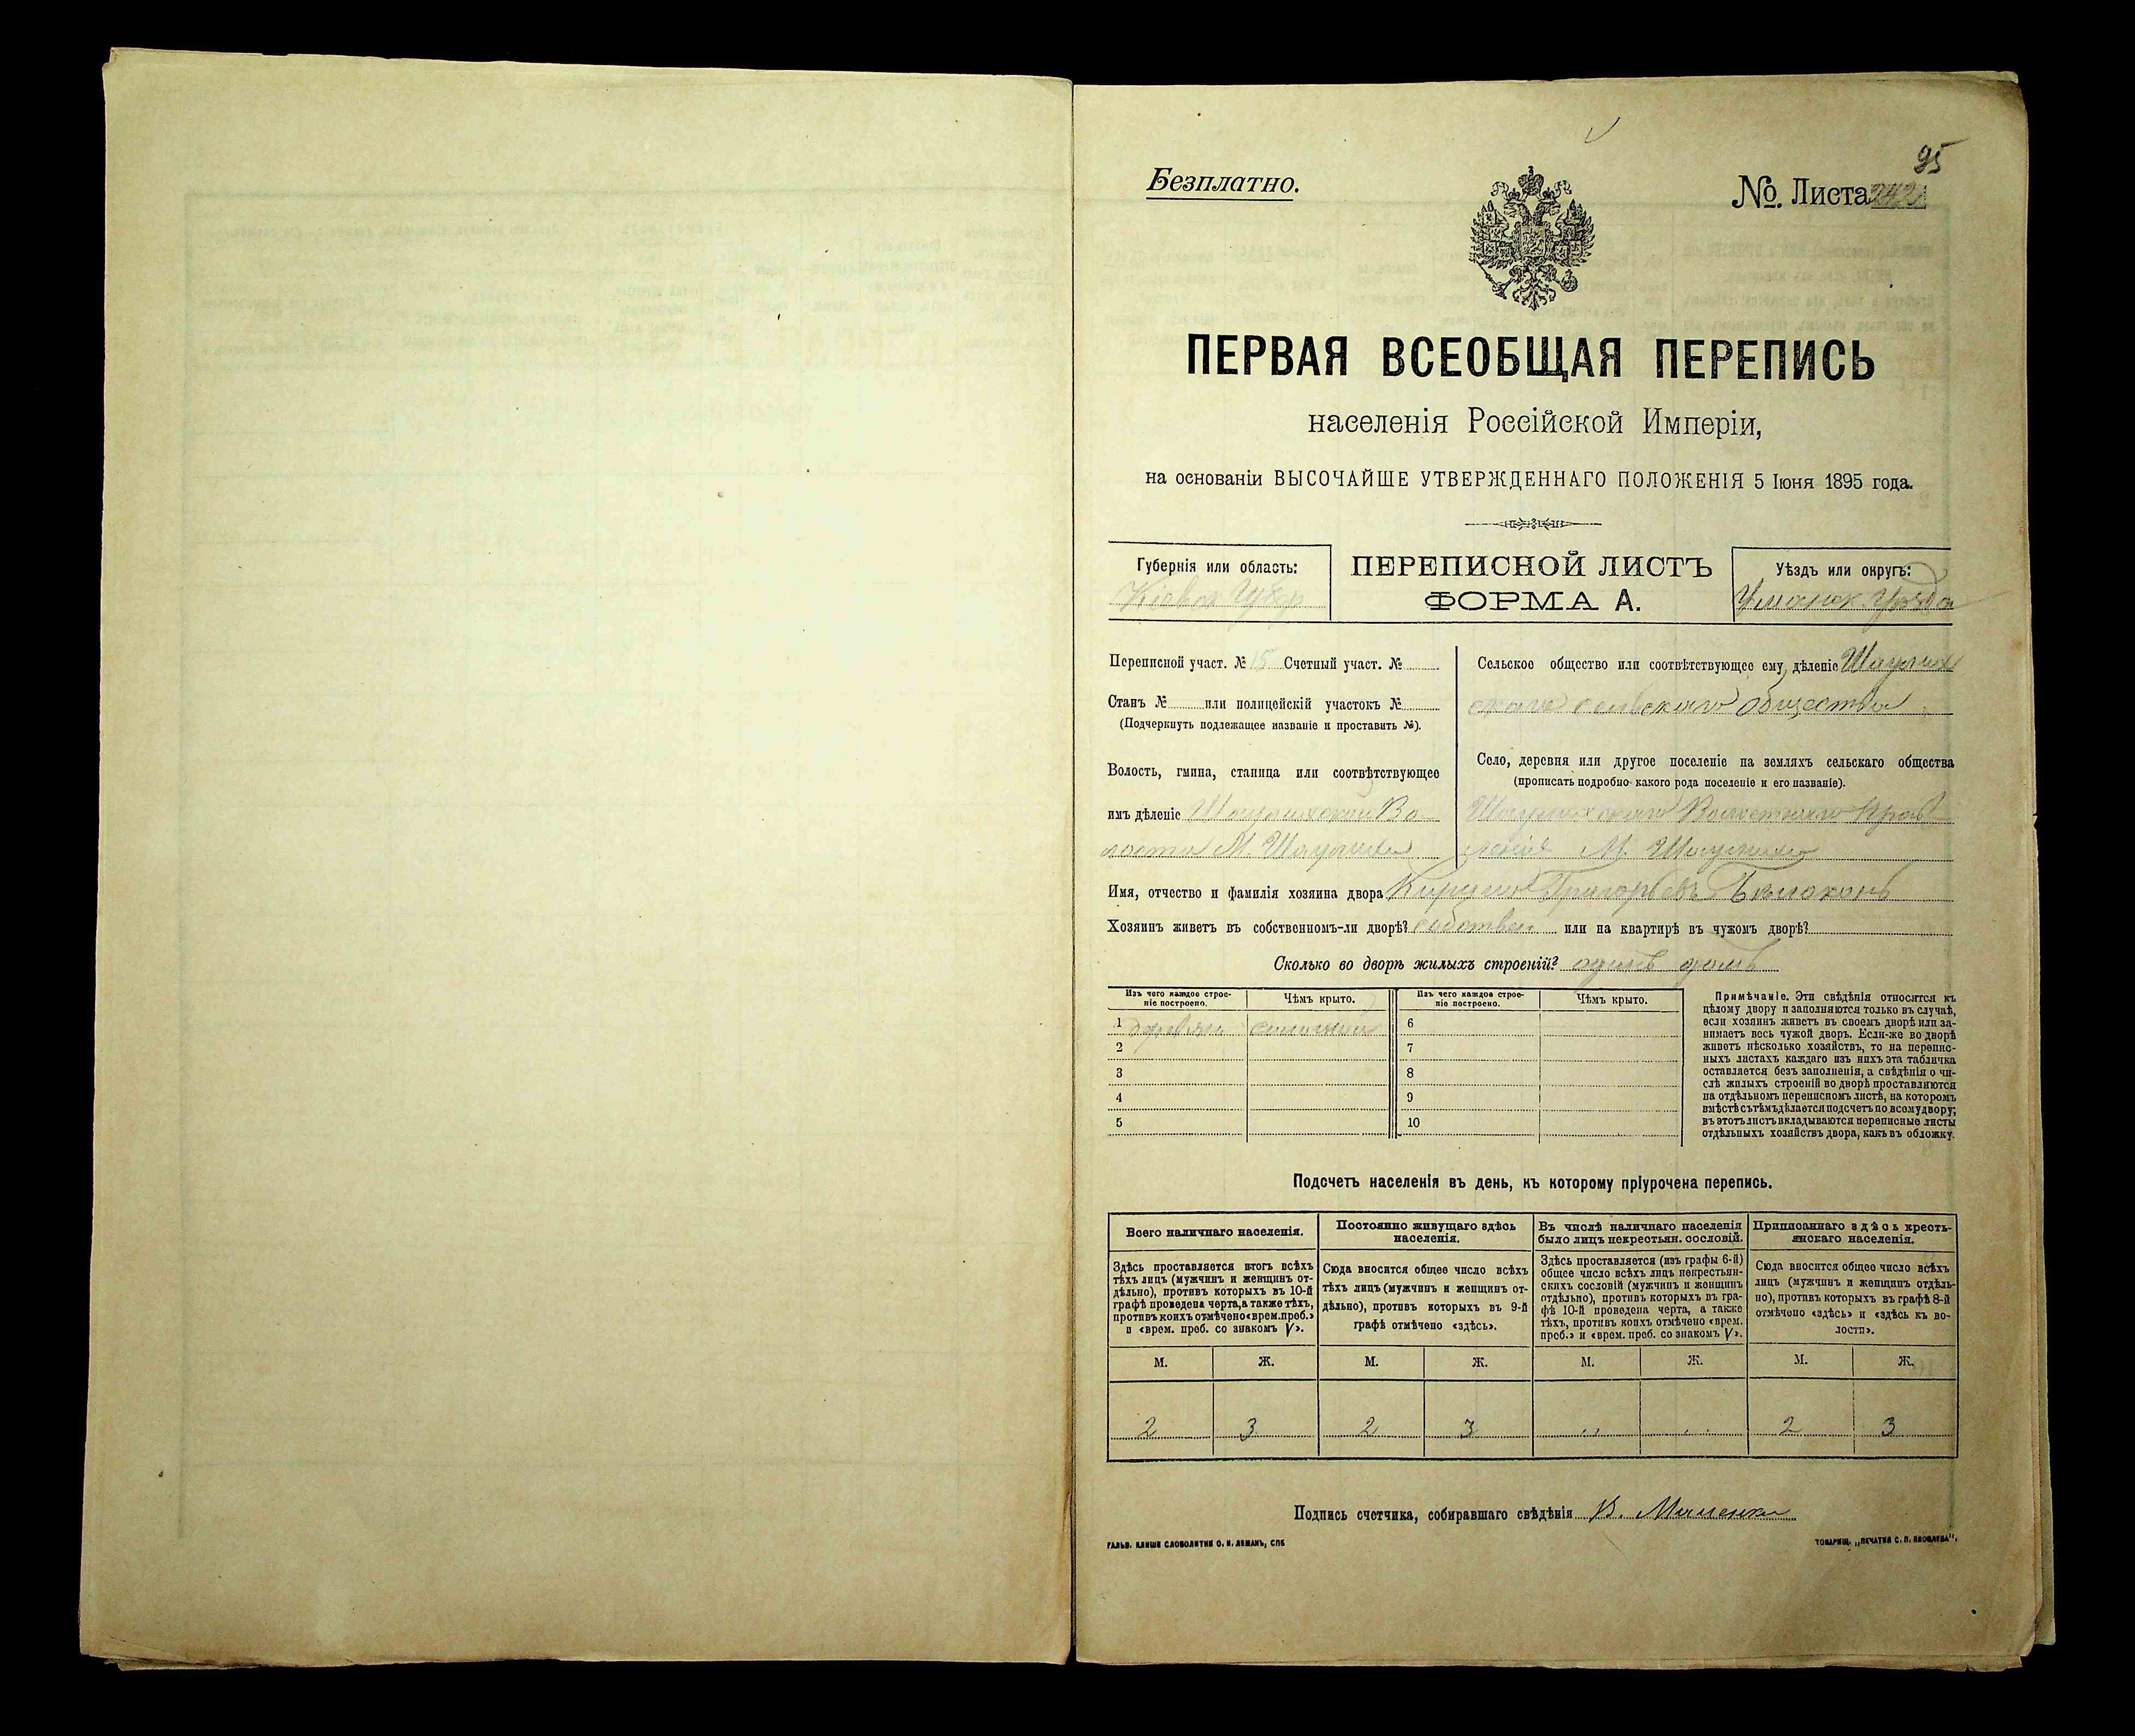 95
Безплатно.
№ Листа 242
ПЕРВАЯ ВСЕОБЩАЯ ПЕРЕПИСЬ
населенія Россійской Имперіи,
на основаніи ВЫСОЧАЙШЕ УТВЕРЖДЕННАГО ПОЛОЖЕНІЯ 5 Іюня 1895 года.
Губернія или область:
Кіевск Губер
ПЕРЕПИСНОЙ ЛИСТЪ
ФОРМА А.
Уѣздъ или округъ:
Уманск. Уѣзда
Переписной участ. № 15 Счетный участ. №
Станъ № или полицейскій участокъ №
(Подчеркнуть подлежащее названіе и проставить №).
Волость, гмина, станица или соотвѣтствующее
имъ дѣленіе Шаулихской Во-
лости М. Шаулиха
Сельское общество или соотвѣтствующее ему дѣленіе Шаулих
скаго сельскаго общества
Село, деревня или другое поселеніе на земляхъ сельскаго общества
(прописать подробно какого рода поселеніе и его названіе).
Шаулихскаго Волостнаго Прав
ленія М. Шаулиха
Имя, отчество и фамилія хозяина двора Григорьевъ Бѣлоконь
Хозяинъ живетъ въ собственномъ-ли дворѣ? собствен или на квартирѣ въ чужомъ дворѣ?
Сколько во дворѣ жилыхъ строеній? одинъ домъ
Изъ чего каждое строе-
ніе построено.
Чѣмъ крыто.
Изъ чего каждое строе-
ніе построено.
Чѣмъ крыто.
1 деревян соломой 6
2 7
3 8
4 9
5 10
Примѣчаніе. Эти свѣдѣнія относятся къ
цѣлому двору и заполняются только въ случаѣ,
если хозяинъ живетъ въ своемъ дворѣ или за-
нимаетъ весь чужой дворъ. Если-же во дворѣ
живетъ нѣсколько хозяйствъ, то на перепис-
ныхъ листахъ каждаго изъ нихъ эта табличка
оставляется безъ заполненія, а свѣдѣнія о чи-
слѣ жилыхъ строеній во дворѣ проставляются
на отдѣльномъ переписномъ листѣ, на которомъ
вмѣстѣ съ тѣмъ дѣлается подсчетъ по всему двору;
въ этотъ листъ вкладываются переписные листы
отдѣльныхъ хозяйствъ двора, какъ въ обложку.
Подсчетъ населенія въ день, къ которому пріурочена перепись.
Всего наличнаго населенія.
Здѣсь проставляется итогъ всѣхъ
тѣхъ лицъ (мужчинъ и женщинъ от-
дѣльно), противъ которыхъ въ 10-й
графѣ проведена черта, а также тѣхъ,
противъ коихъ отмѣчено «врем. преб.»
и «врем. преб. со знакомъ V».
Постоянно живущаго здѣсь
населенія.
Сюда вносится общее число всѣхъ
тѣхъ лицъ (мужчинъ и женщинъ от-
дѣльно), противъ которыхъ въ 9-й
графѣ отмѣчено «здѣсь».
Въ числѣ наличнаго населенія
было лицъ некрестьян. сословій.
Здѣсь проставляется (изъ графы 6-й)
общее число всѣхъ лицъ некрестьян-
скихъ сословій (мужчинъ и женщинъ
отдѣльно), противъ которыхъ въ гра-
фѣ 10-й проведена черта, а также
тѣхъ, противъ коихъ отмѣчено «врем.
преб.» и «врем. преб. со знакомъ V».
Приписаннаго здѣсь кресть-
янскаго населенія.
Сюда вносится общее число всѣхъ
лицъ (мужчинъ и женщинъ отдѣль-
но), противъ которыхъ въ графѣ 8-й
отмѣчено «здѣсь» и «здѣсь къ во-
лости».
М. Ж. М. Ж. М. Ж. М. Ж.
2 3 2 3 2 3
Подпись счетчика, собиравшаго свѣдѣнія
ГАЛЬВ. КЛИШЕ СЛОВОЛИТНИ О. И. ЛЕМАНЪ, СПБ
ТОВАРИЩ. „ПЕЧАТНЯ С. П. ЯКОВЛЕВА".